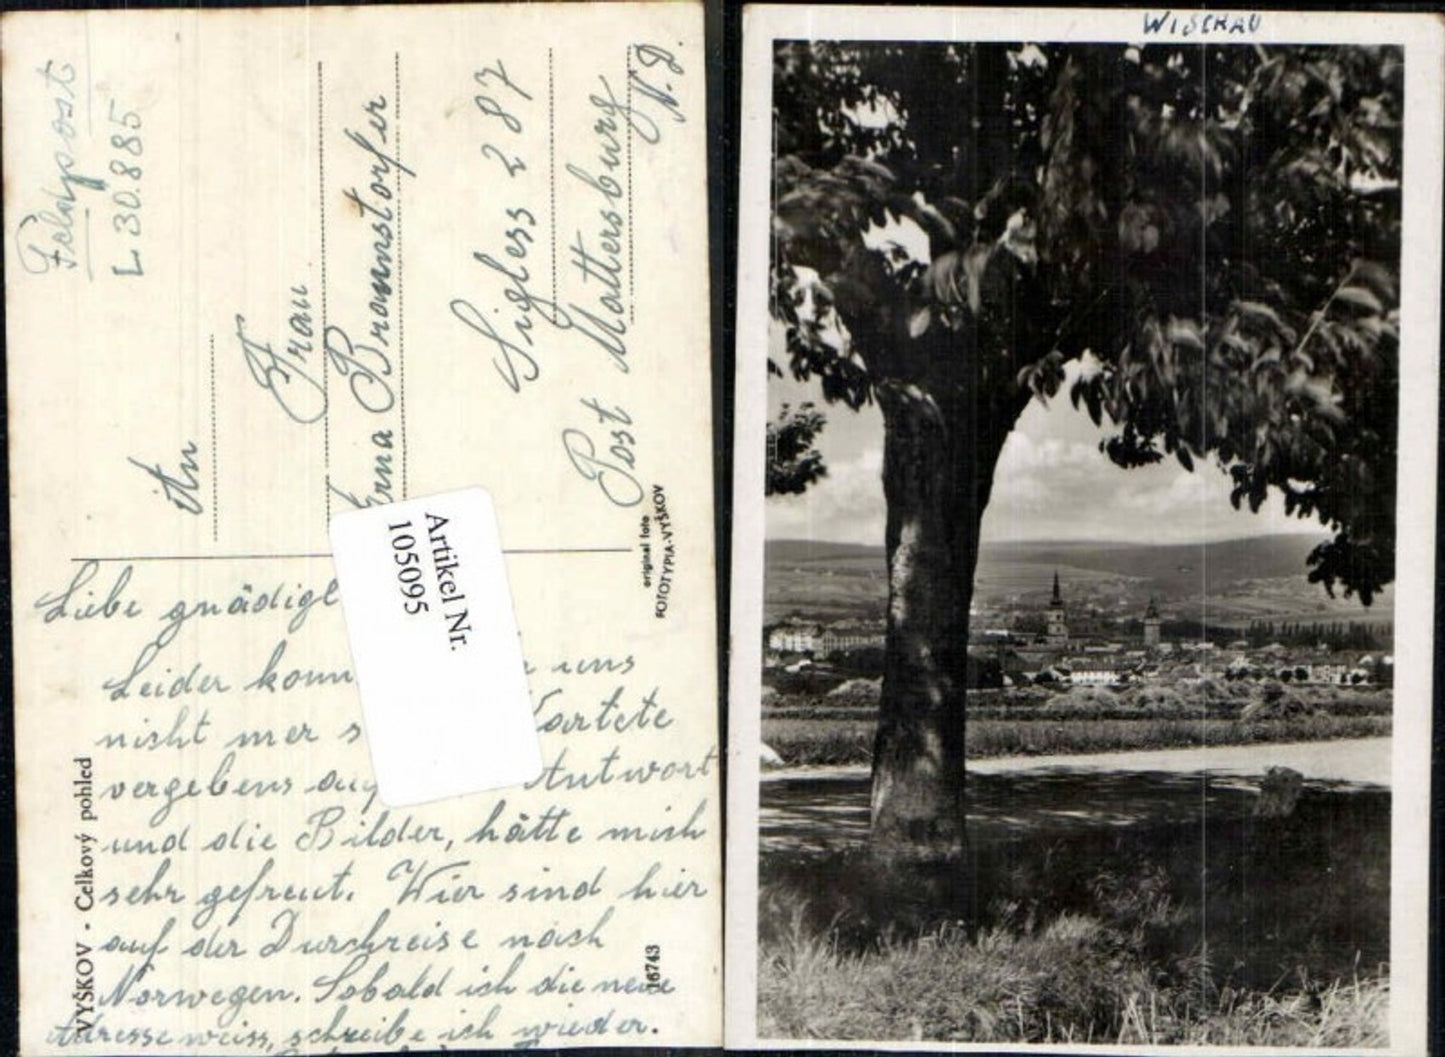 Feldpost
L 30.885
An
Frau
Erna Brannstorfer
Sigless 287
Post Mattersburg
N. D.
original foto
FOTOTYPIA-VYŠKOV
Artikel Nr.
105095
Liebe gnädige
Leider konn uns
nicht mer s Wartete
vergebens auf Antwort
und die Bilder, hätte mich
sehr gefreut. Wier sind hier
auf der Durchreise nach
Norwegen. Sobald ich die neue
Adresse weiss, schreibe ich wieder.
VYŠKOV - Celkový pohled
16743
WISCHAU